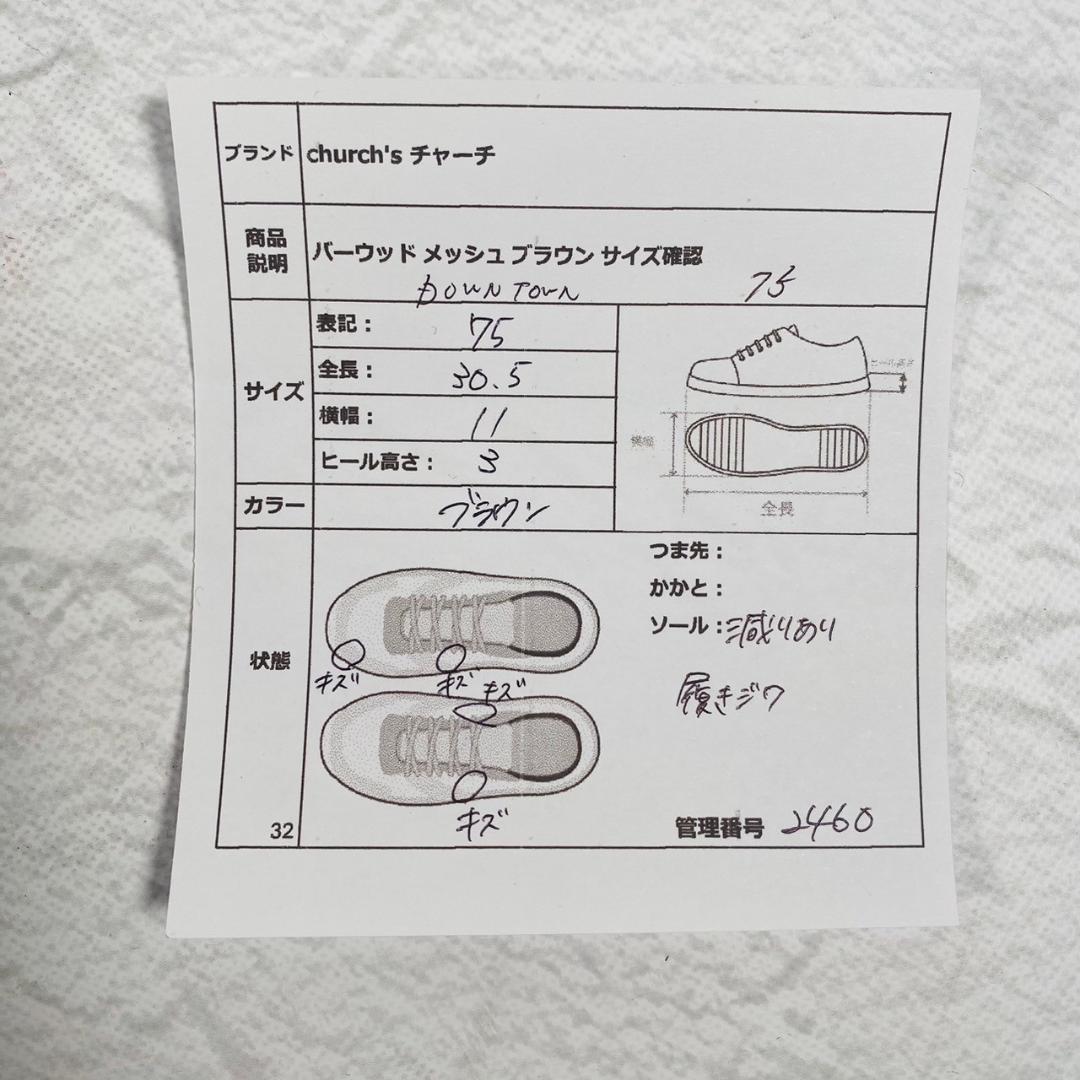 ブランド church's チャーチ
商品説明 バーウッド メッシュ ブラウン サイズ確認
DOWN TOWN 75
サイズ
表記： 75
全長： 30.5
横幅： 11
ヒール高さ： 3
ヒール高さ
横幅
全長
カラー ブラウン
状態
つま先：
かかと：
ソール：減りあり
履きジワ
キズ キズ キズ
キズ
32
管理番号 2460